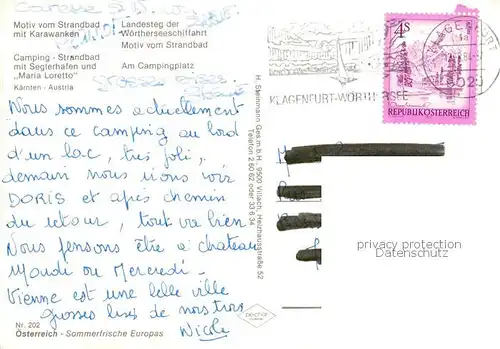 Motiv vom Strandbad
mit Karawanken
Camping - Strandbad
mit Seglerhafen und
„Maria Loretto"
Kärnten - Austria
Landesteg der
Wörtherseeschiffahrt
Motiv vom Strandbad
Am Campingplatz
Nous sommes actuellement
dans ce camping au bord
d'un lac, très joli,
demain nous irons voir
DORIS et après chemin
du retour, tout va bien
Nous pensons être à chateau
Mardi ou Mercredi.
Vienne est une belle ville
Grosses bises de nous trois
Nicole
Nr. 202
Österreich - Sommerfrische Europas
H. Steinmann Ges.m.b.H. 9500 Villach, Heizhausstraße 52
Telefon 2 60 62 oder 33 6 34
KLAGENFURT-WÖRTHERSEE
4S
REPUBLIK ÖSTERREICH
privacy protection
Datenschutz